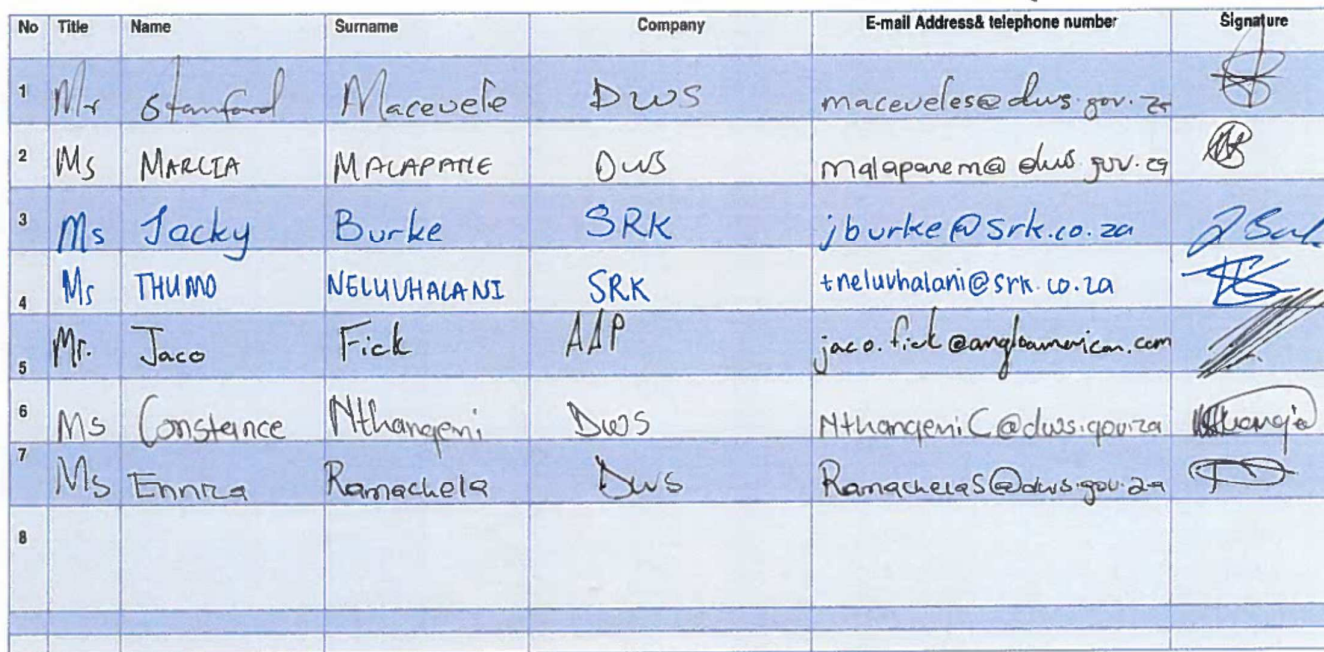 No Title Name Surname Company E-mail Address& telephone number Signature
1 Mr Stanford Macevele DWS maceveles@dws.gov.za
2 Ms MARCIA MALAPANE DWS malapanem@dws.gov.za
3 Ms Jacky Burke SRK jburke@srk.co.za
4 Ms THUMO NELUVHALANI SRK tneluvhalani@srk.co.za
5 Mr. Jaco Fick AAP jaco.fick@angloamerican.com
6 Ms Constance Nthangeni DWS NthangeniC@dws.gov.za
7 Ms Ennica Ramachela DWS RamachelaS@dws.gov.za
8